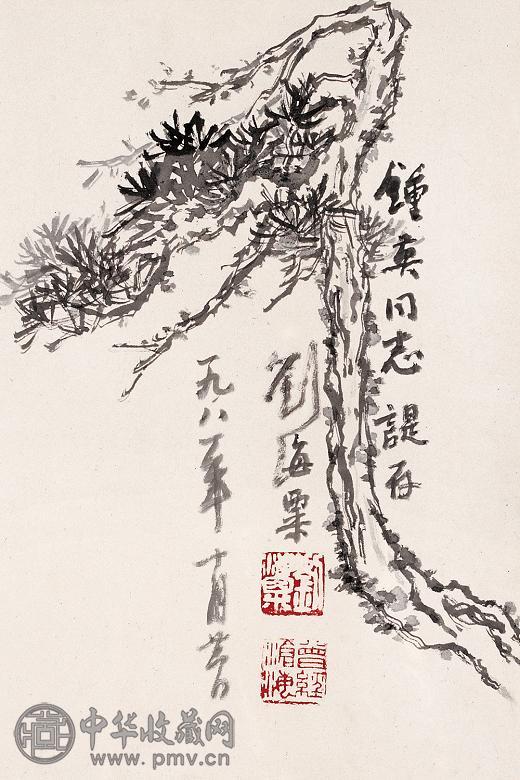 鍾英同志
諟存
劉海粟
一九八一年
十月
劉海粟
曾經滄海
中华收藏网
www.pmv.cn